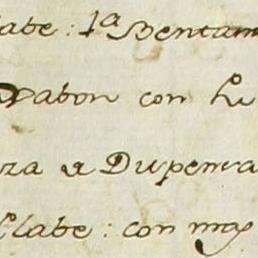 labe: 1ª Bentan
Dabon con hº
za a Dupenra
Clabe: con may